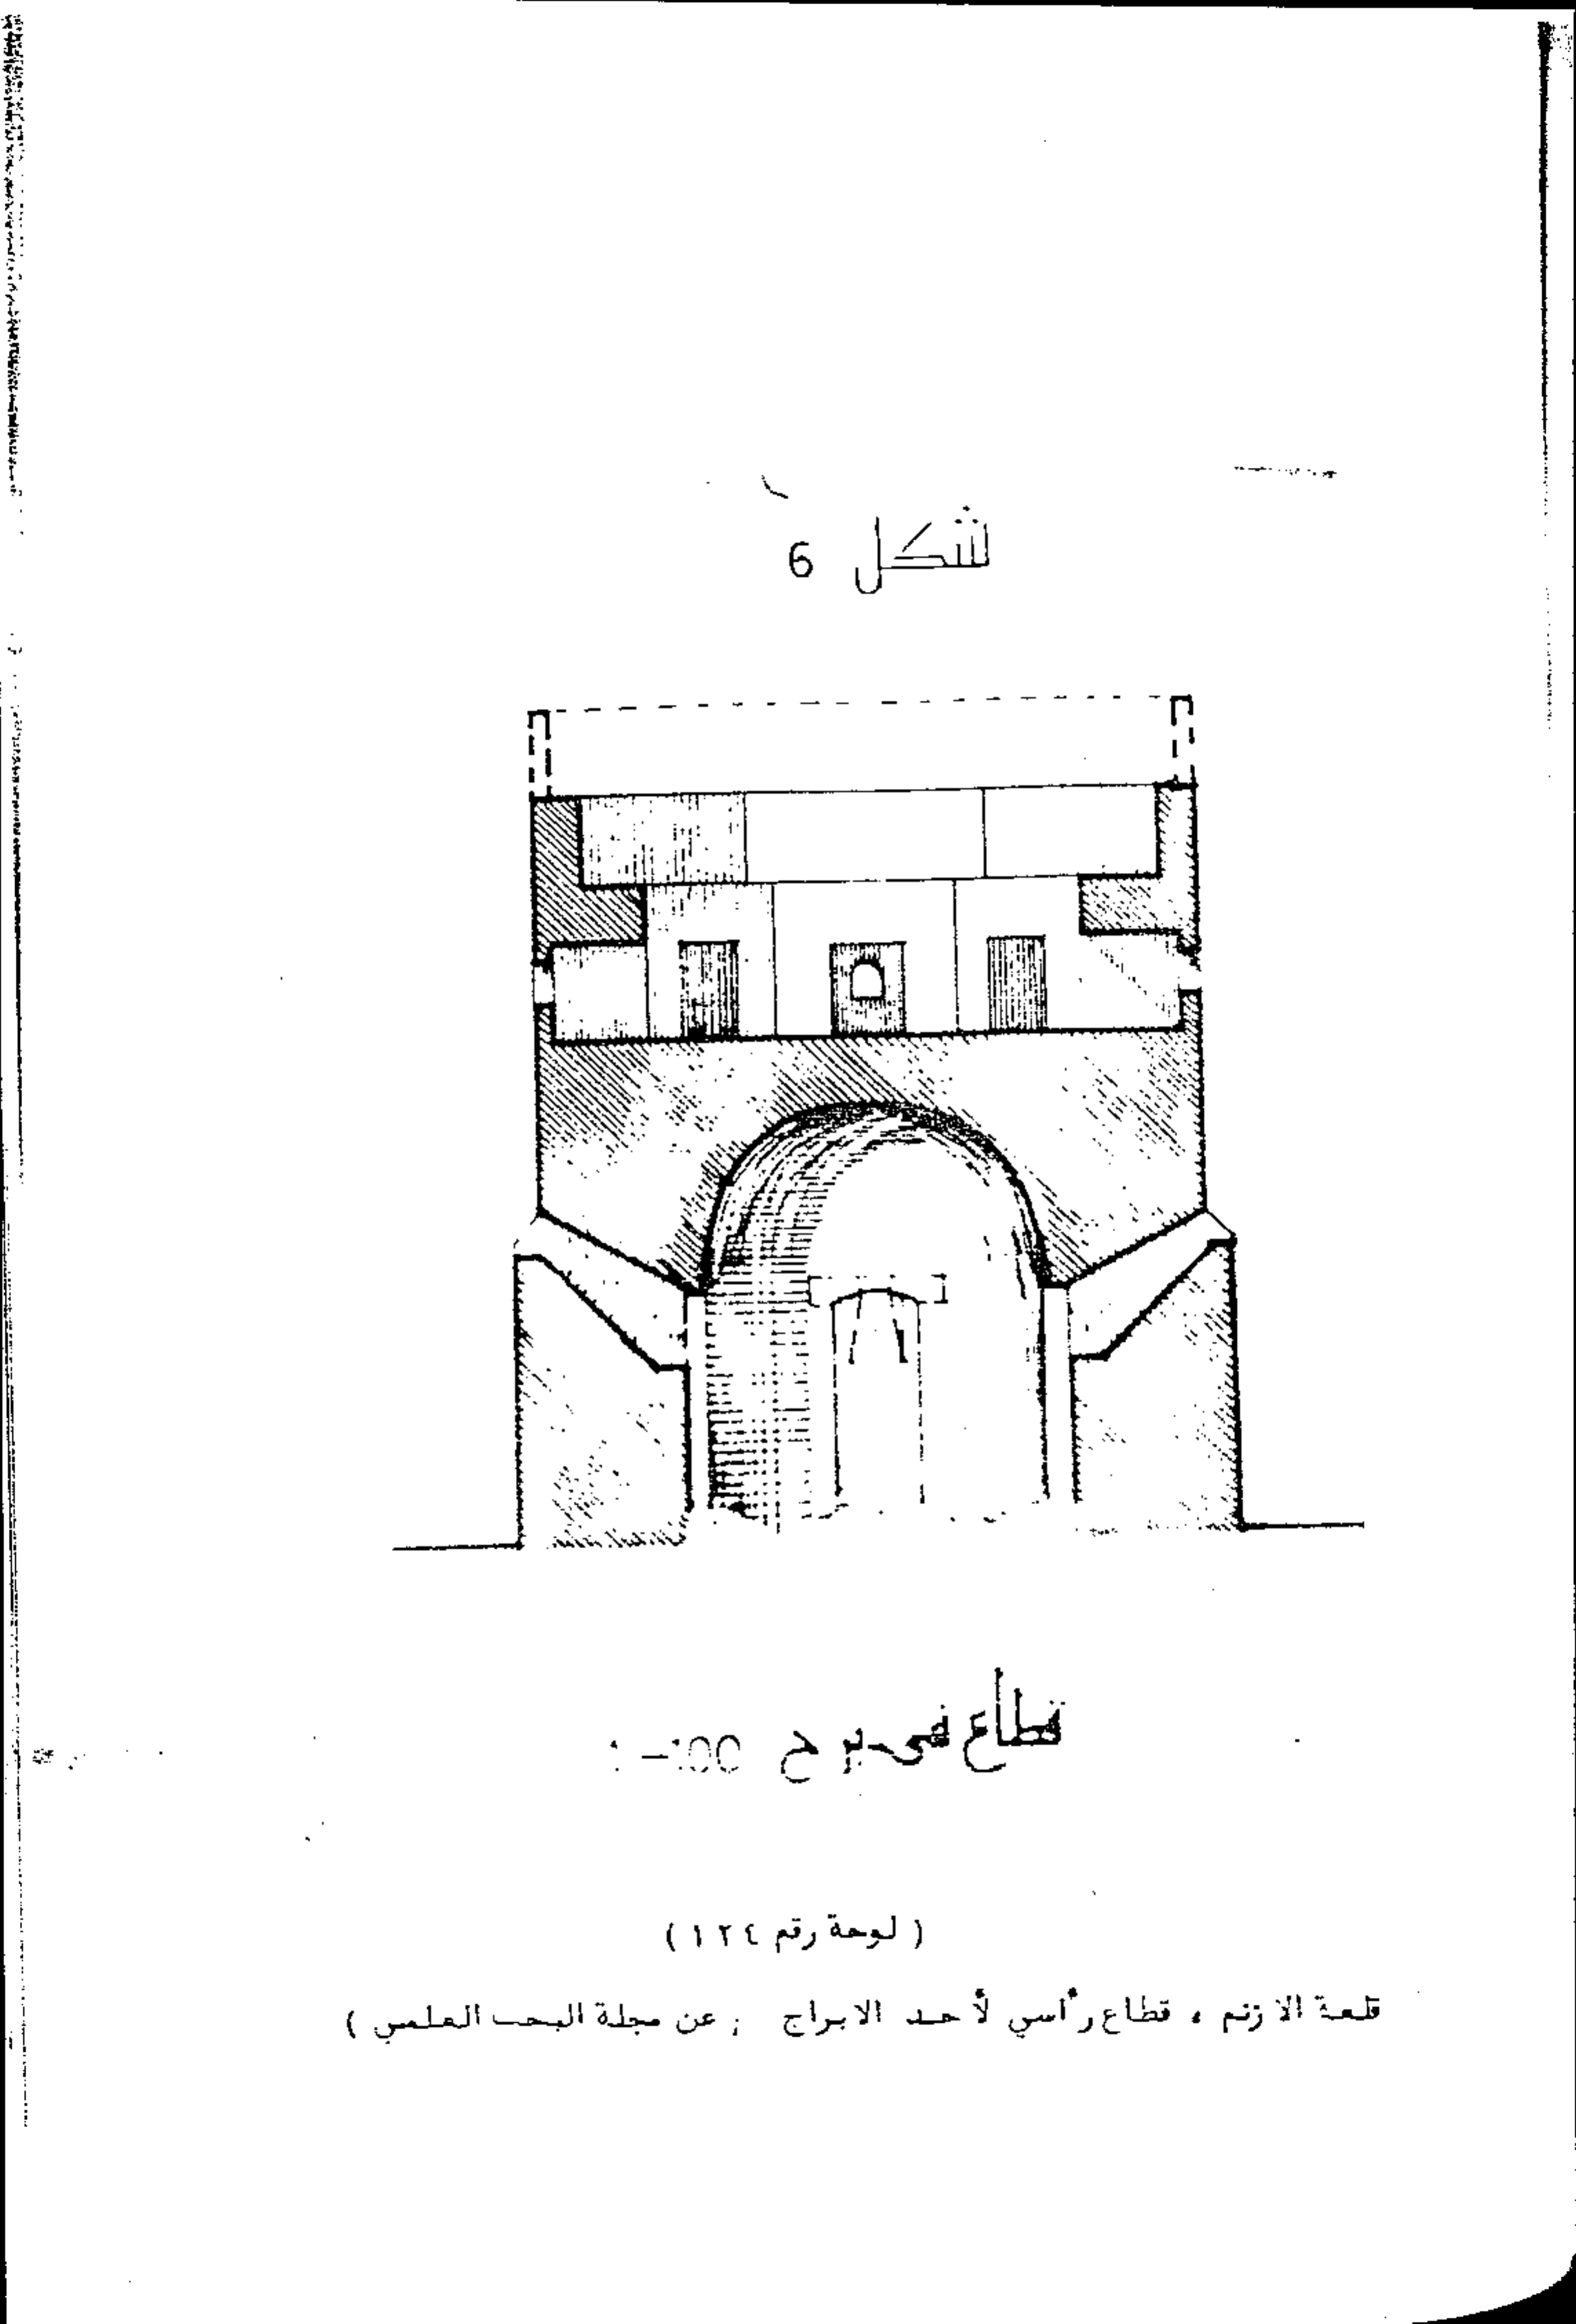 شكل 6
قطاع في برج 100-1
( لوحة رقم ١٢٤ )
قلعة الازنم ، قطاع رأسي لأحد الابراج ( عن مجلة البحث العلمي )